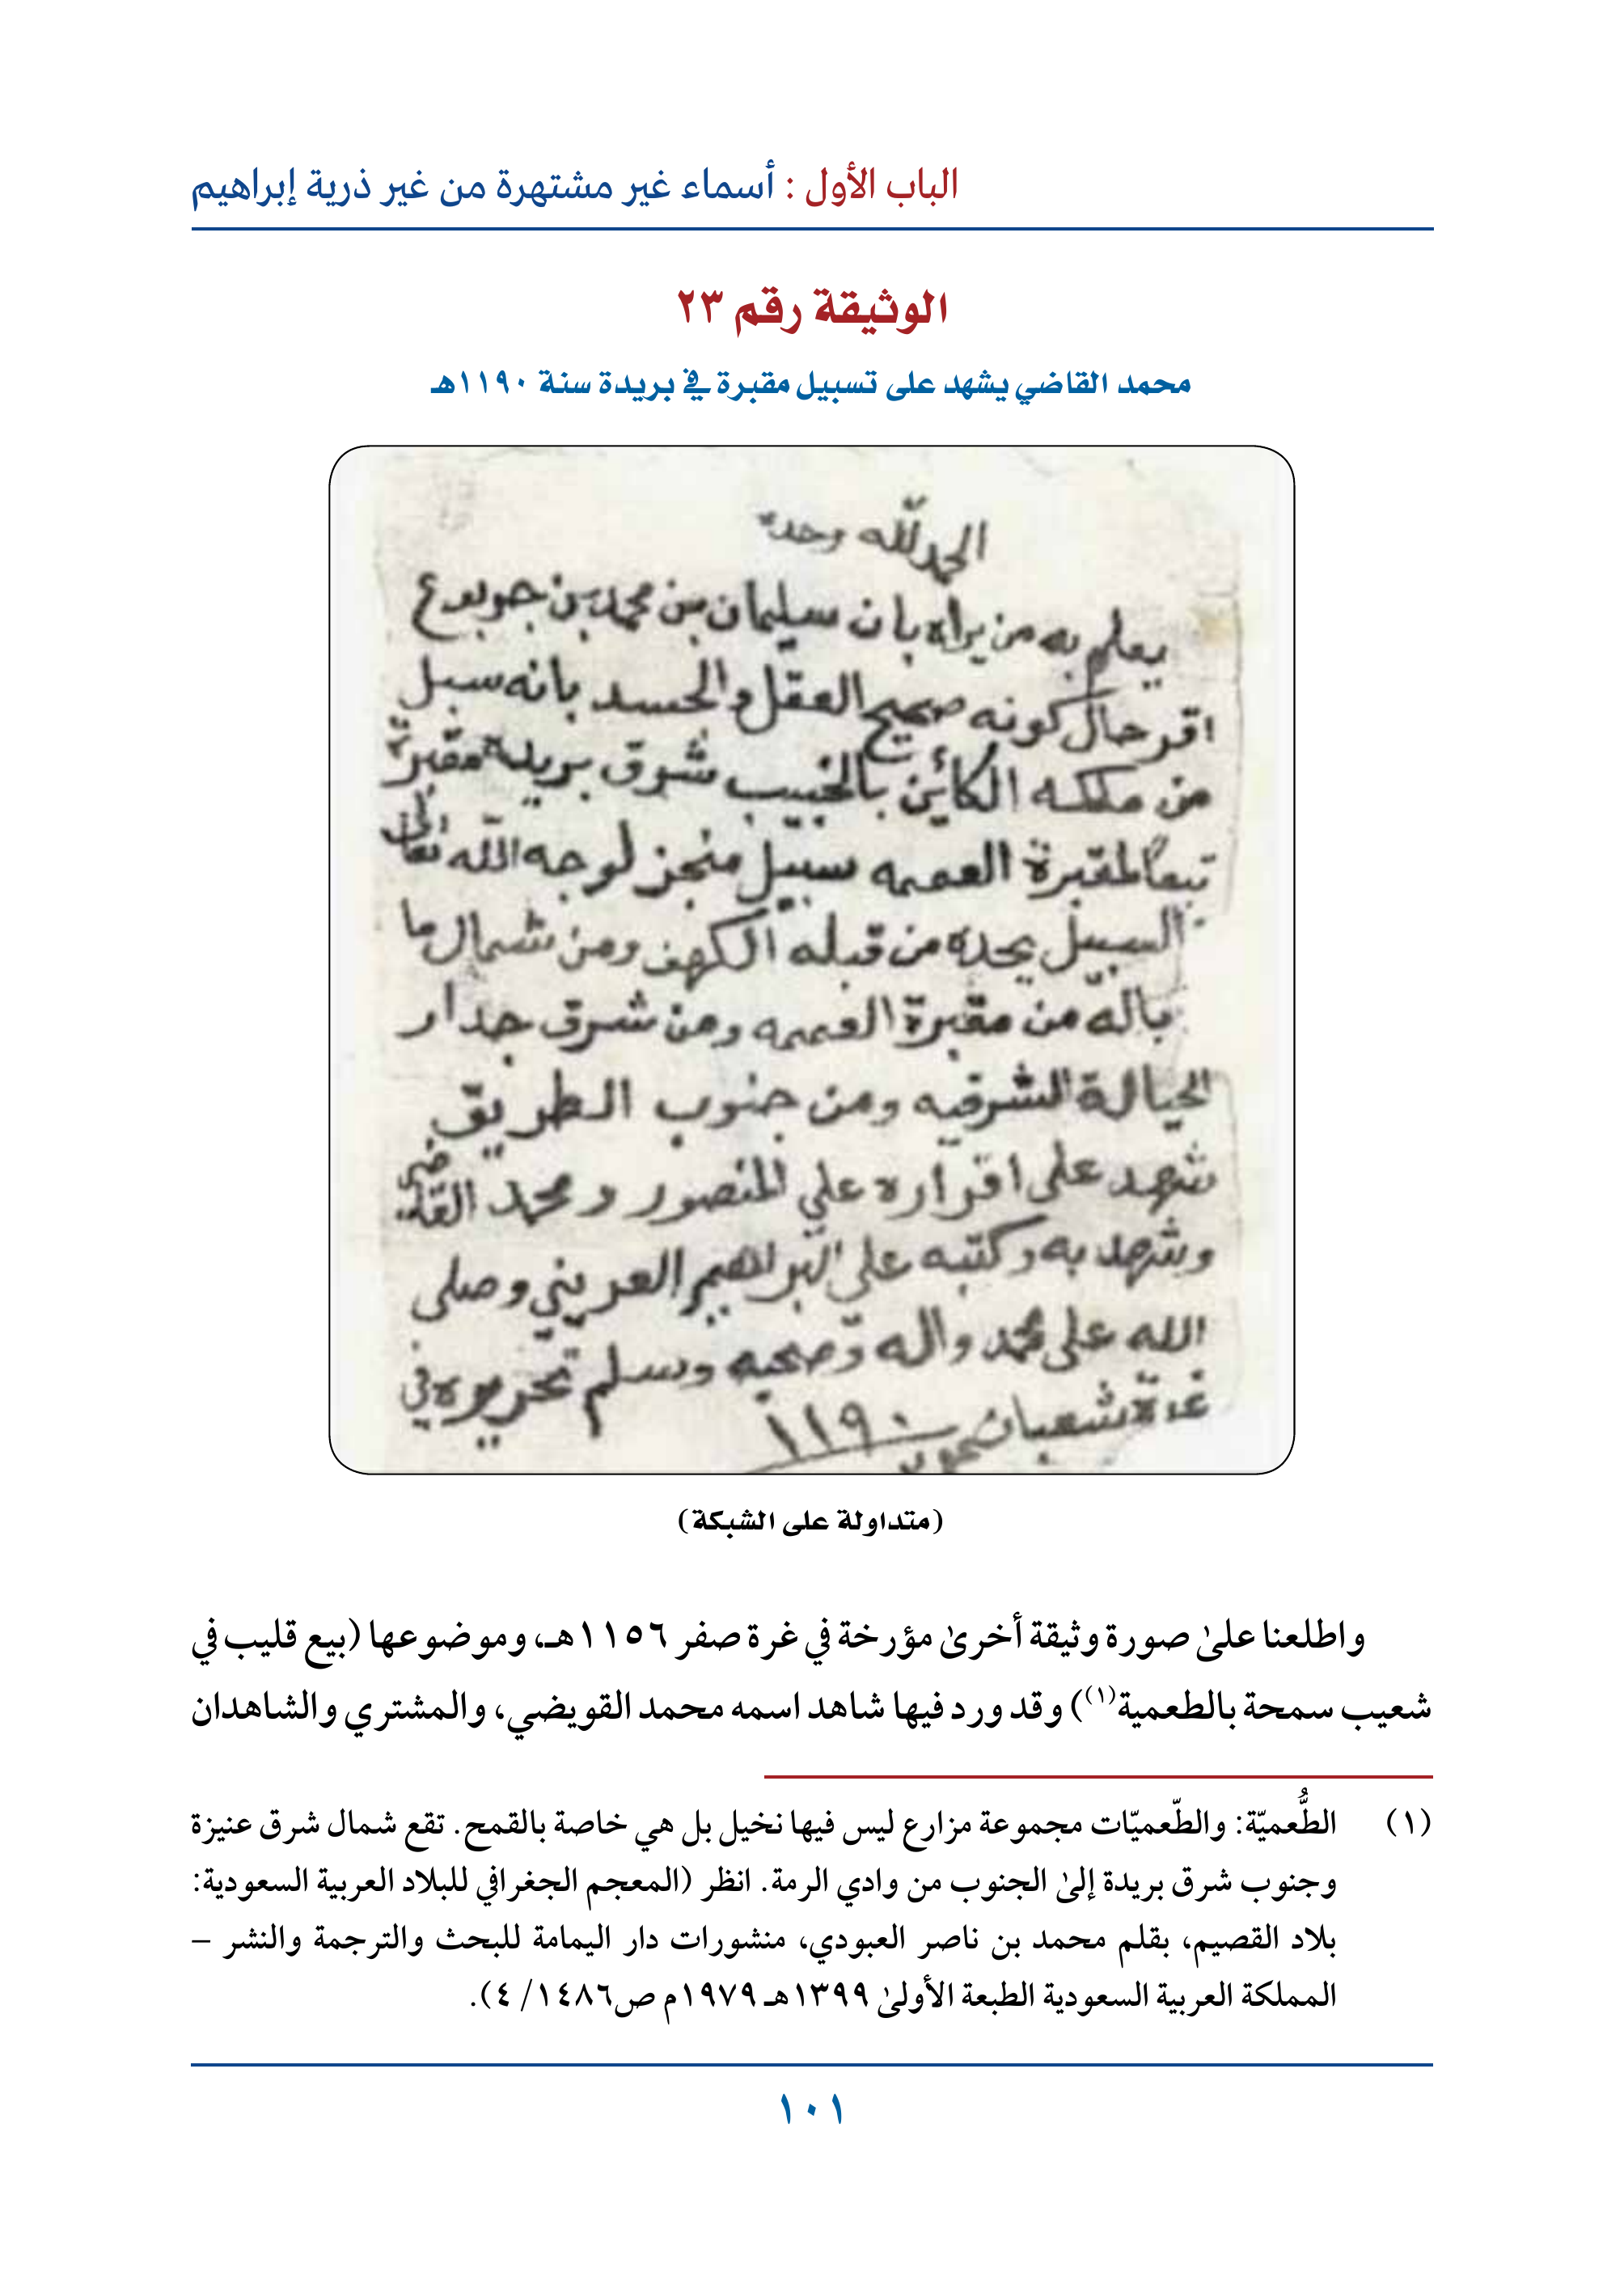 الباب الأول : أسماء غير مشتهرة من غير ذرية إبراهيم
الوثيقة رقم ٢٣
محمد القاضي يشهد على تسبيل مقبرة في بريدة سنة ١١٩٠هـ
الحمد لله وحده
يعلم به من يراه بان سليمان بن محمد بن جويوع
اقر حال كونه صحيح العقل والجسد بانه سبل
من ملكه الكائن بالخبيب شرق بريدة مقبرة
تبعا لمقبرة العميمه سبيل منجز لوجه الله تعالى
السبيل يحده من قبله الكهف ومن شمال ما
باله من مقبرة العميمه ومن شرق جدار
الحيالة الشرقيه ومن جنوب الطريق
شهد على اقراره علي المنصور ومحمد القاضي
وشهد به وكتبه علي البراهيم العريني وصلى
الله على محمد واله وصحبه وسلم تحريره في
غرة شعبان ١١٩٠
(متداولة على الشبكة)
واطلعنا علىٰ صورة وثيقة أخرىٰ مؤرخة في غرة صفر ١١٥٦هـ، وموضوعها (بيع قليب في
شعيب سمحة بالطعمية(١)) وقد ورد فيها شاهد اسمه محمد القويضي، والمشتري والشاهدان
(١) الطُّعميّة: والطّعميّات مجموعة مزارع ليس فيها نخيل بل هي خاصة بالقمح. تقع شمال شرق عنيزة
وجنوب شرق بريدة إلىٰ الجنوب من وادي الرمة. انظر (المعجم الجغرافي للبلاد العربية السعودية:
بلاد القصيم، بقلم محمد بن ناصر العبودي، منشورات دار اليمامة للبحث والترجمة والنشر –
المملكة العربية السعودية الطبعة الأولىٰ ١٣٩٩هـ ١٩٧٩م ص١٤٨٦/ ٤).
١٠١